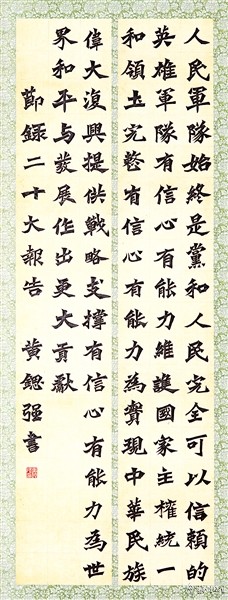 人民軍隊始終是黨和人民完全可以信賴的
英雄軍隊有信心有能力維護國家主權統一
和領土完整有信心有能力為實現中華民族
偉大復興提供戰略支撐有信心有能力為世
界和平与發展作出更大貢獻
節録二十大報告 黄鍶强書